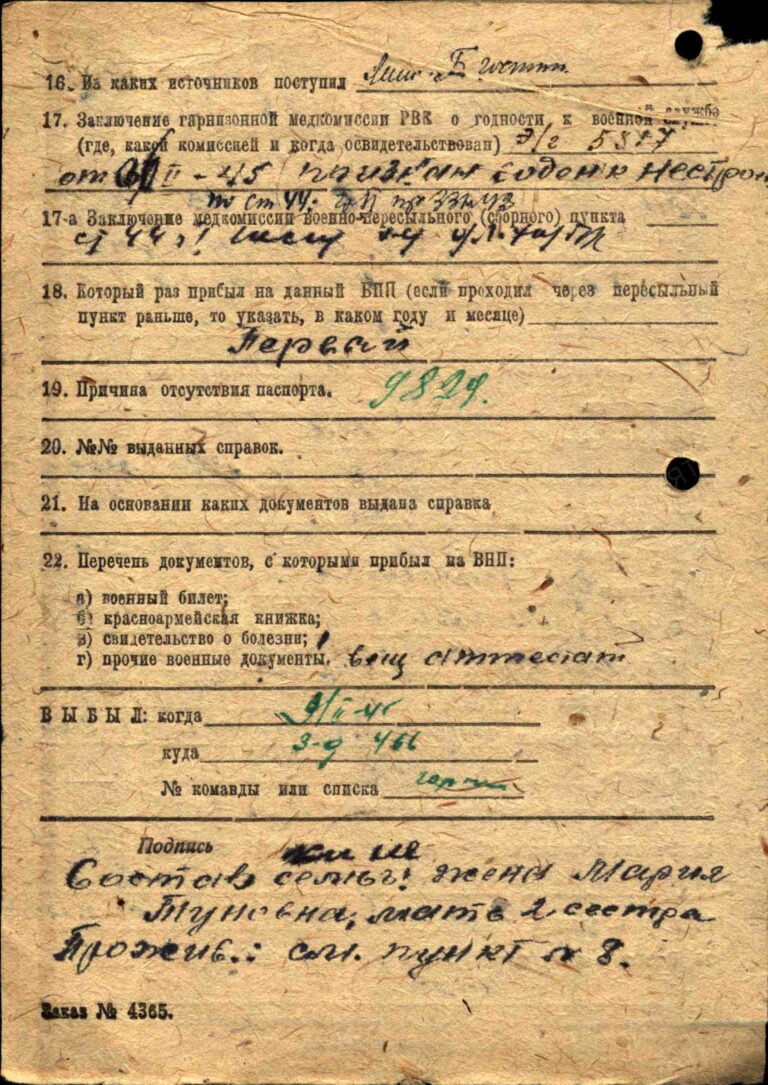 16. Из каких источников поступил
17. Заключение гарнизонной медкомиссии РВК о годности к военной службе
(где, какой комиссией и когда освидетельствован) э/г
от II-45 признан годен к нестроев
по ст 44
17-а Заключение медкомиссии военно-пересыльного (сборного) пункта
ст 44
18. Который раз прибыл на данный ВПП (если проходил через пересыльный
пункт раньше, то указать, в каком году и месяце)
Первый
19. Причина отсутствия паспорта. 9829.
20. №№ выданных справок.
21. На основании каких документов выдана справка
22. Перечень документов, с которыми прибыл на ВПП:
а) военный билет;
б) красноармейская книжка;
в) свидетельство о болезни;
г) прочие военные документы. вещ аттестат
ВЫБЫЛ: когда 9/II-45
куда 3-д 466
№ команды или списка
Подпись
Состав семьи: жена Мария
мать 2 сестра
Прожив.: см. пункт № 8.
Заказ № 4365.